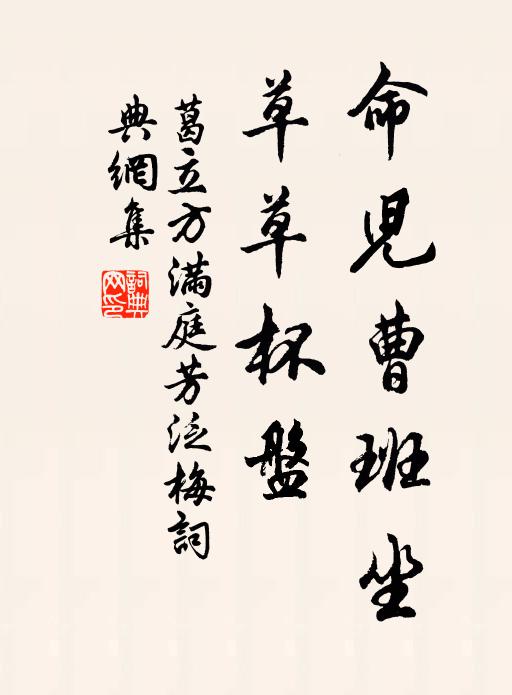 命兒曹班坐
草草杯盤
葛立方滿庭芳泛梅詞
典網集
詞典網印